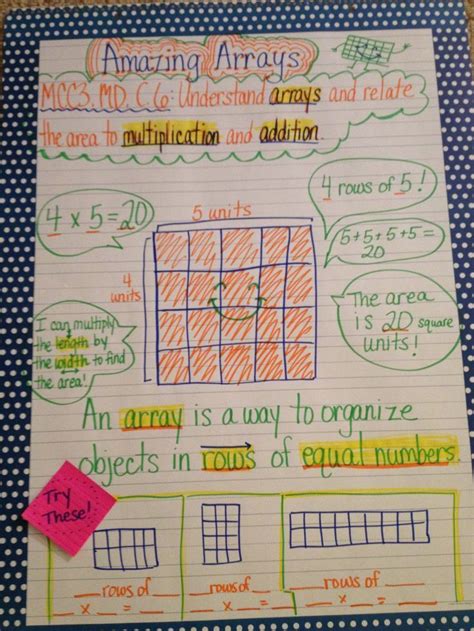 Amazing Arrays
MCC3.MD.C.6: Understand arrays and relate
the area to multiplication and addition.
4 x 5 = 20
5 units
4 rows of 5!
5+5+5+5=
20
4
units
The area
is 20 square
units!
I can multiply
the length by
the width to find
the area!
An array is a way to organize
objects in rows of equal numbers.
Try
These!
__ rows of __
__ x __ = __
__ rows of __
__ x __ = __
__ rows of __
__ x __ = __